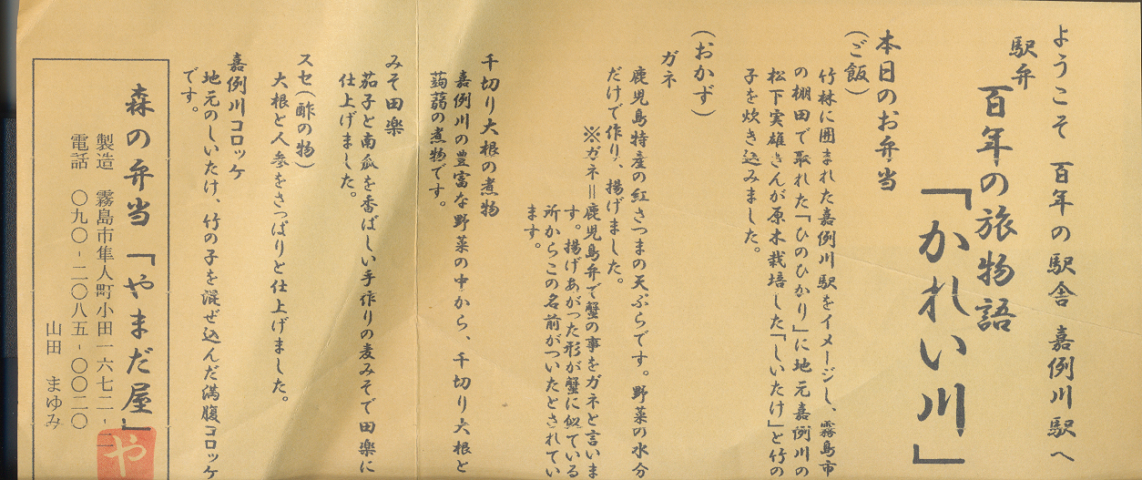 ようこそ 百年の駅舎 嘉例川駅へ
駅弁
百年の旅物語
「かれい川」
本日のお弁当
(ご飯)
竹林に囲まれた嘉例川駅をイメージし、霧島市
の棚田で取れた「ひのひかり」に地元嘉例川の
松下実雄さんが原木栽培した「しいたけ」と竹の
子を炊き込みました。
(おかず)
ガネ
鹿児島特産の紅さつまの天ぷらです。野菜の水分
だけで作り、揚げました。
※ガネ=鹿児島弁で蟹の事をガネと言いま
す。揚げあがった形が蟹に似ている
所からこの名前がついたとされてい
ます。
千切り大根の煮物
嘉例川の豊富な野菜の中から、千切り大根と
蒟蒻の煮物です。
みそ田楽
茄子と南瓜を香ばしい手作りの麦みそで田楽に
仕上げました。
スセ(酢の物)
大根と人参をさっぱりと仕上げました。
嘉例川コロッケ
地元のしいたけ、竹の子を混ぜ込んだ満腹コロッケ
です。
森の弁当「やまだ屋」
製造 霧島市隼人町小田一六七二-二
電話 〇九〇-二〇八五-〇〇二〇
山田 まゆみ
や